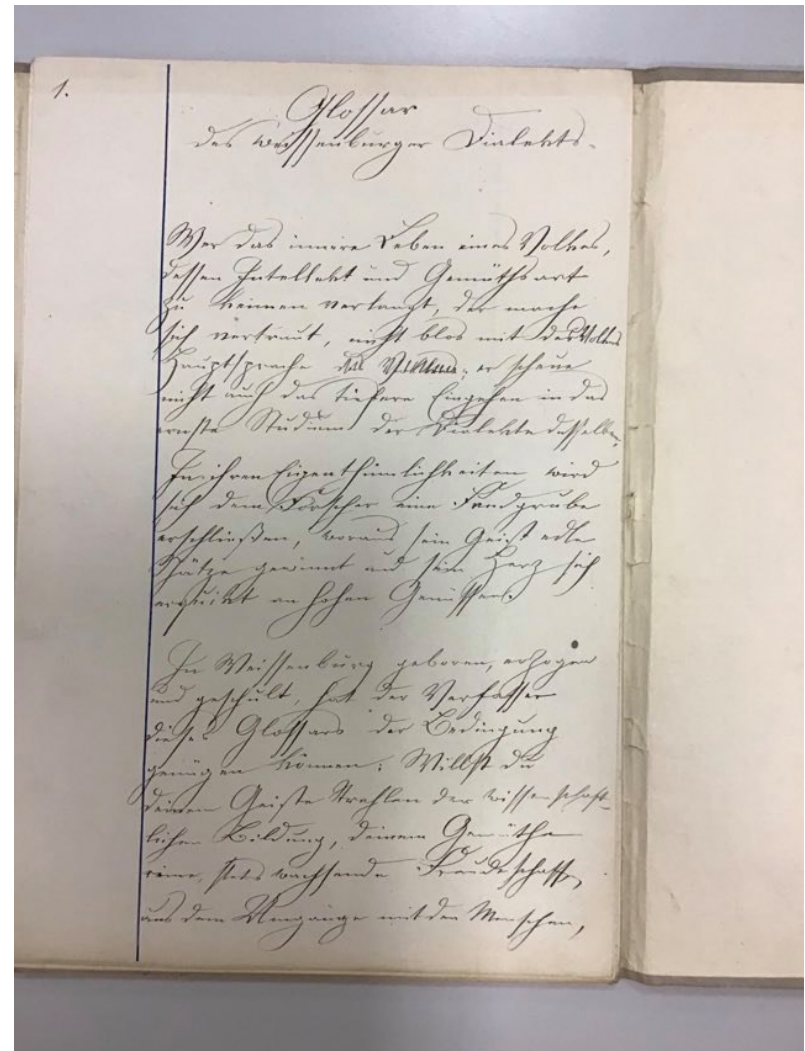 1.
Glossar
des Weissenburger Dialekts.
Wer das innere Leben eines Volkes,
dessen Intellekt und Gemüthsart
zu kennen verlangt, der mache
sich vertraut, nicht blos mit des Volkes
Hauptsprache; er scheue
nicht auch das tiefere Eingehen in das
ernste Studium der Dialekte desselben.
In ihren Eigenthümlichkeiten wird
sich dem Forscher eine Fundgrube
erschließen, woraus sein Geist edle
Schätze gewinnt und sein Herz sich
erquickt an hohen Genüssen.
In Weissenburg geboren, erzogen
und geschult, hat der Verfasser
dieses Glossars der Bedingung
genügen können: Willst du
deinem Geiste Strahlen der wissenschaft-
lichen Bildung, deinem Gemüthe
reine, stets wachsende Freude schaffen
aus dem Umgange mit den Menschen,